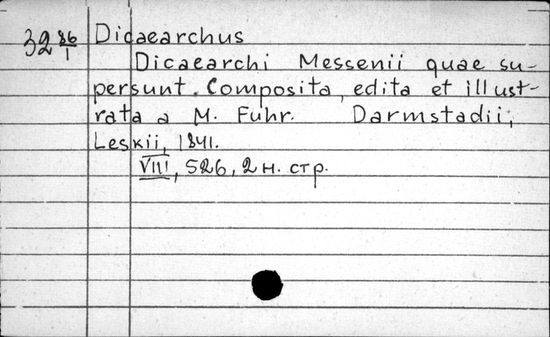 32 86/1 Dicaearchus
Dicaearchi Messenii quae su-
persunt. Composita, edita et illust-
rata a M. Fuhr. Darmstadii,
Leskii, 1841.
VIII, 526, 2 н. стр.